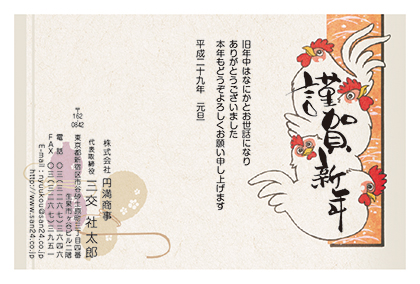 謹賀新年
旧年中はなにかとお世話になり
ありがとうございました
本年もどうぞよろしくお願い申し上げます
平成二十九年　元旦
株式会社 円満商事
代表取締役 三交 社太郎
〒162-0842
東京都新宿区市谷砂土原町三丁目四番
生泉市ヶ谷ビル二階
電話 〇三(三二六七)三六四六
FAX 〇三(三二六七)三九五一
E-mail:nyuukou@san24.co.jp
http://www.san24.co.jp